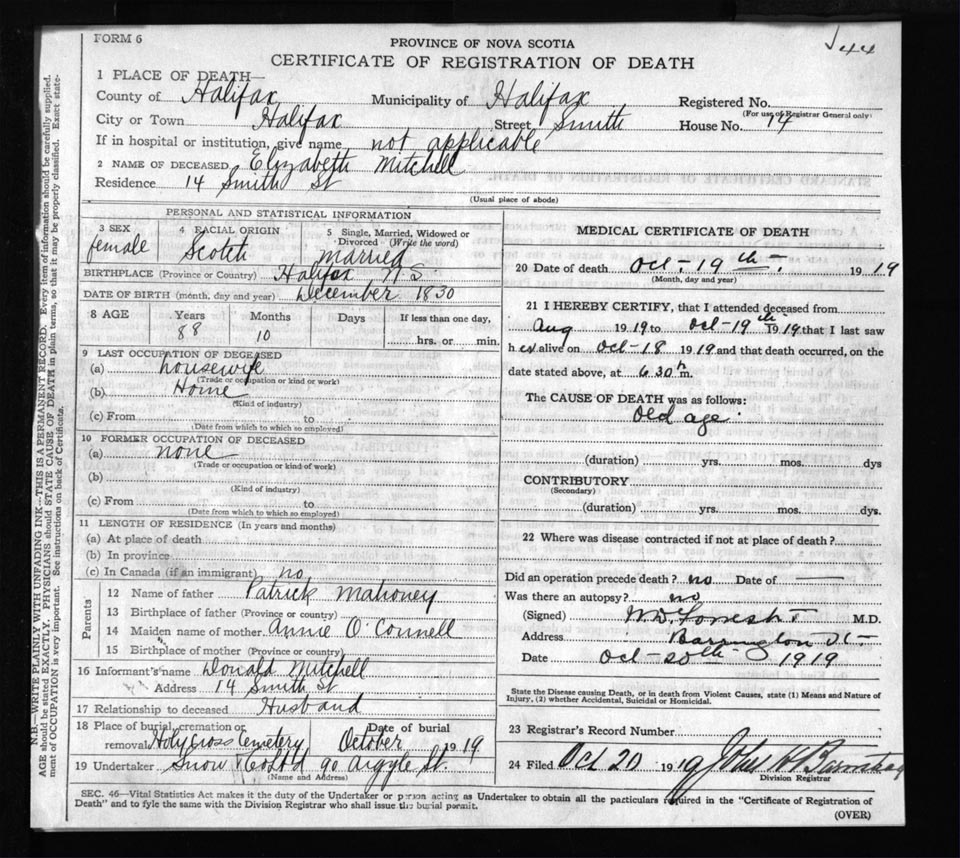 FORM 6
44
PROVINCE OF NOVA SCOTIA
CERTIFICATE OF REGISTRATION OF DEATH
1 PLACE OF DEATH—
County of Halifax Municipality of Halifax Registered No.
(For use of Registrar General only)
City or Town Halifax Street Smith House No. 14
If in hospital or institution, give name not applicable
2 NAME OF DECEASED Elizabeth Mitchell
Residence 14 Smith St
(Usual place of abode)
PERSONAL AND STATISTICAL INFORMATION
3 SEX 4 RACIAL ORIGIN 5 Single, Married, Widowed or Divorced (Write the word)
female Scotch Married
BIRTHPLACE (Province or Country) Halifax N S
DATE OF BIRTH (month, day and year) December 1830
8 AGE Years Months Days If less than one day,
88 10 hrs. or min.
9 LAST OCCUPATION OF DECEASED
(a) housewife
(Trade or occupation or kind or work)
(b) Home
(Kind of industry)
(c) From to
(Date from which to which so employed)
10 FORMER OCCUPATION OF DECEASED
(a) none
(Trade or occupation or kind of work)
(b)
(Kind of industry)
(c) From to
(Date from which to which so employed)
11 LENGTH OF RESIDENCE (In years and months)
(a) At place of death
(b) In province
(c) In Canada (if an immigrant) no
Parents
12 Name of father Patrick Mahoney
13 Birthplace of father (Province or country)
14 Maiden name of mother Annie O'Connell
15 Birthplace of mother (Province or country)
16 Informant's name Donald Mitchell
Address 14 Smith St
17 Relationship to deceased Husband
18 Place of burial, cremation or removal Holy Cross Cemetery Date of burial October 1919
19 Undertaker Snow & Co Ltd 90 Argyle St.
(Name and Address)
MEDICAL CERTIFICATE OF DEATH
20 Date of death Oct. 19th. 1919
(Month, day and year)
21 I HEREBY CERTIFY, that I attended deceased from
Aug 1919 to Oct-19th 1919 that I last saw
her alive on Oct-18 1919 and that death occurred, on the
date stated above, at 6 30 m.
The CAUSE OF DEATH was as follows:
Old age
(duration) yrs. mos. dys
CONTRIBUTORY
(Secondary)
(duration) yrs. mos. dys.
22 Where was disease contracted if not at place of death?
Did an operation precede death? no Date of —
Was there an autopsy? no
(Signed) W.D. Forrest M.D.
Address Barrington St
Date Oct-20th 1919
State the Disease causing Death, or in death from Violent Causes, state (1) Means and Nature of
Injury, (2) whether Accidental, Suicidal or Homicidal.
23 Registrar's Record Number
24 Filed Oct 20 1919 John
Division Registrar
SEC. 46—Vital Statistics Act makes it the duty of the Undertaker or person acting as Undertaker to obtain all the particulars required in the "Certificate of Registration of
Death" and to fyle the same with the Division Registrar who shall issue the burial permit.
(OVER)
N.B.—WRITE PLAINLY WITH UNFADING INK—THIS IS A PERMANENT RECORD. Every item of information should be carefully supplied.
AGE should be stated EXACTLY. PHYSICIANS should STATE CAUSE OF DEATH in plain terms, so that it may be properly classified. Exact state-
ment of OCCUPATION is very important. See instructions on back of Certificate.